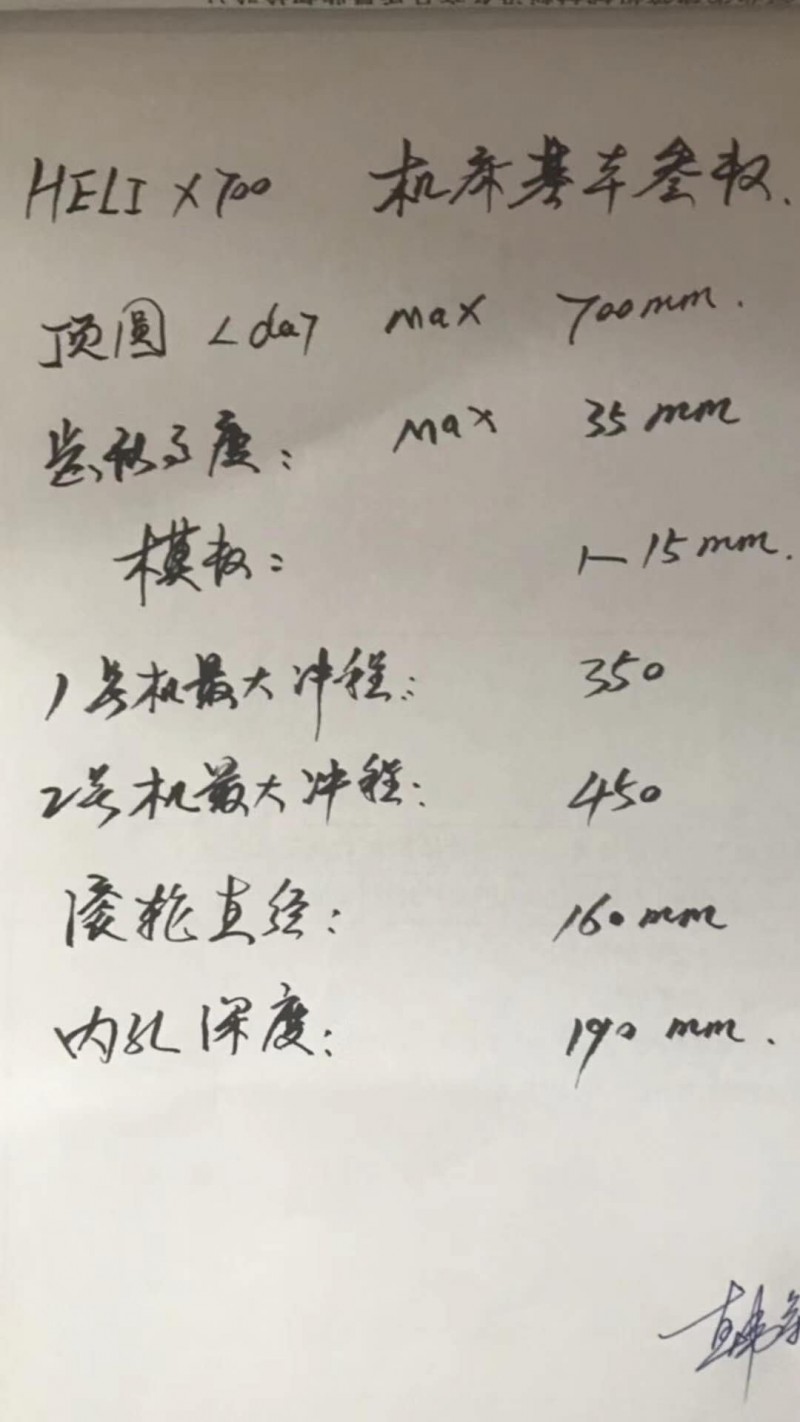 HELIX700 机床基本参数.
顶圆<da> max 700mm.
齿轮高度: max 35mm
模数: 1-15mm.
1号机最大冲程: 350
2号机最大冲程: 450
滚轮直径: 160mm
内孔深度: 190mm.
韩